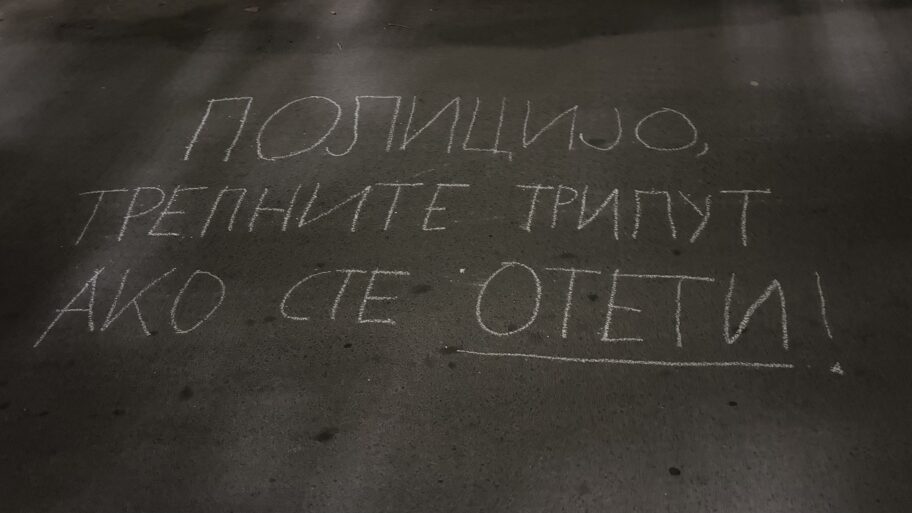 ПОЛИЦИЈО,
ТРЕПНИТЕ ТРИПУТ
АКО СТЕ ОТЕТИ!